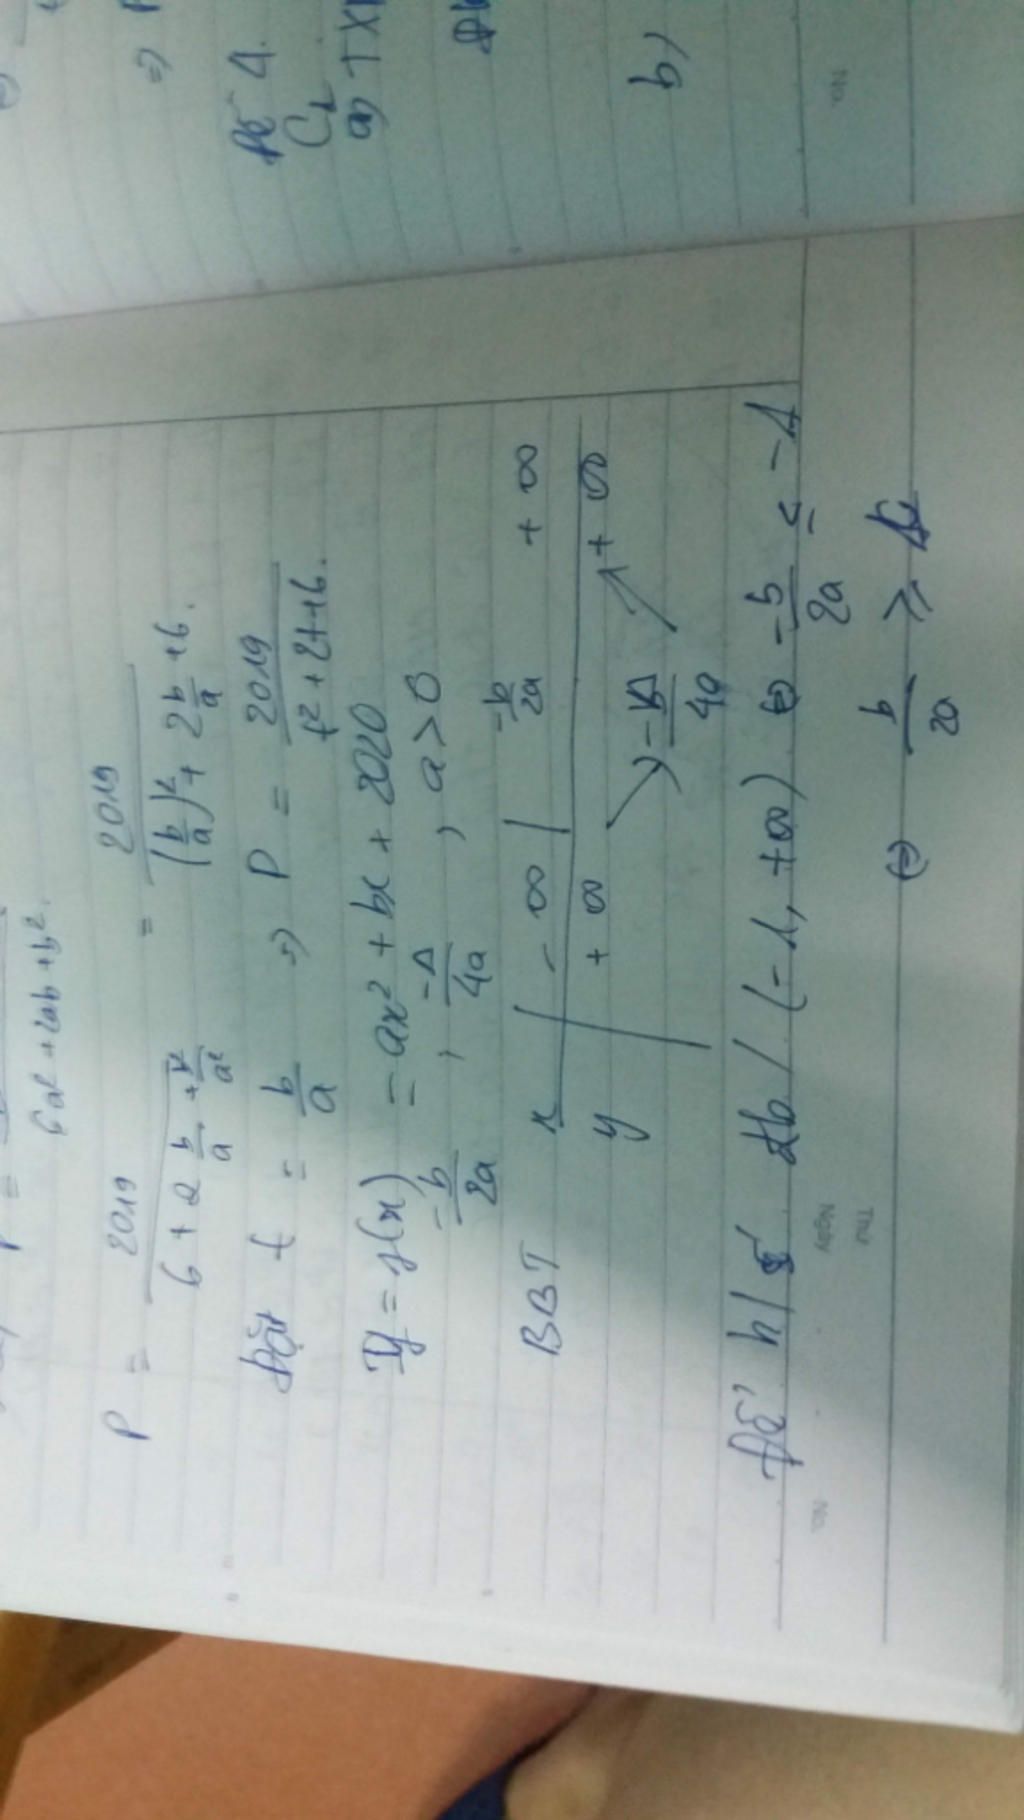 6a² + 2ab + b².
P = 2019 / (6 + 2 b/a + b²/a²) = 2019 / ((b/a)² + 2 b/a + 6).
Đặt t = b/a => P = 2019 / (t² + 2t + 6).
y = f(x) = ax² + bx + 2020
-b/2a , -Δ/4a , a > 0
BBT x | -∞ -b/2a +∞
y | +∞ -Δ/4a +∞
Để h/s đb / (-1, +∞) ⇔ -b/2a ≤ -1
⇔ b/2a ≥ 1
No.
Thứ
Ngày
Đề 4.
C1
a) TXĐ
b)
No.